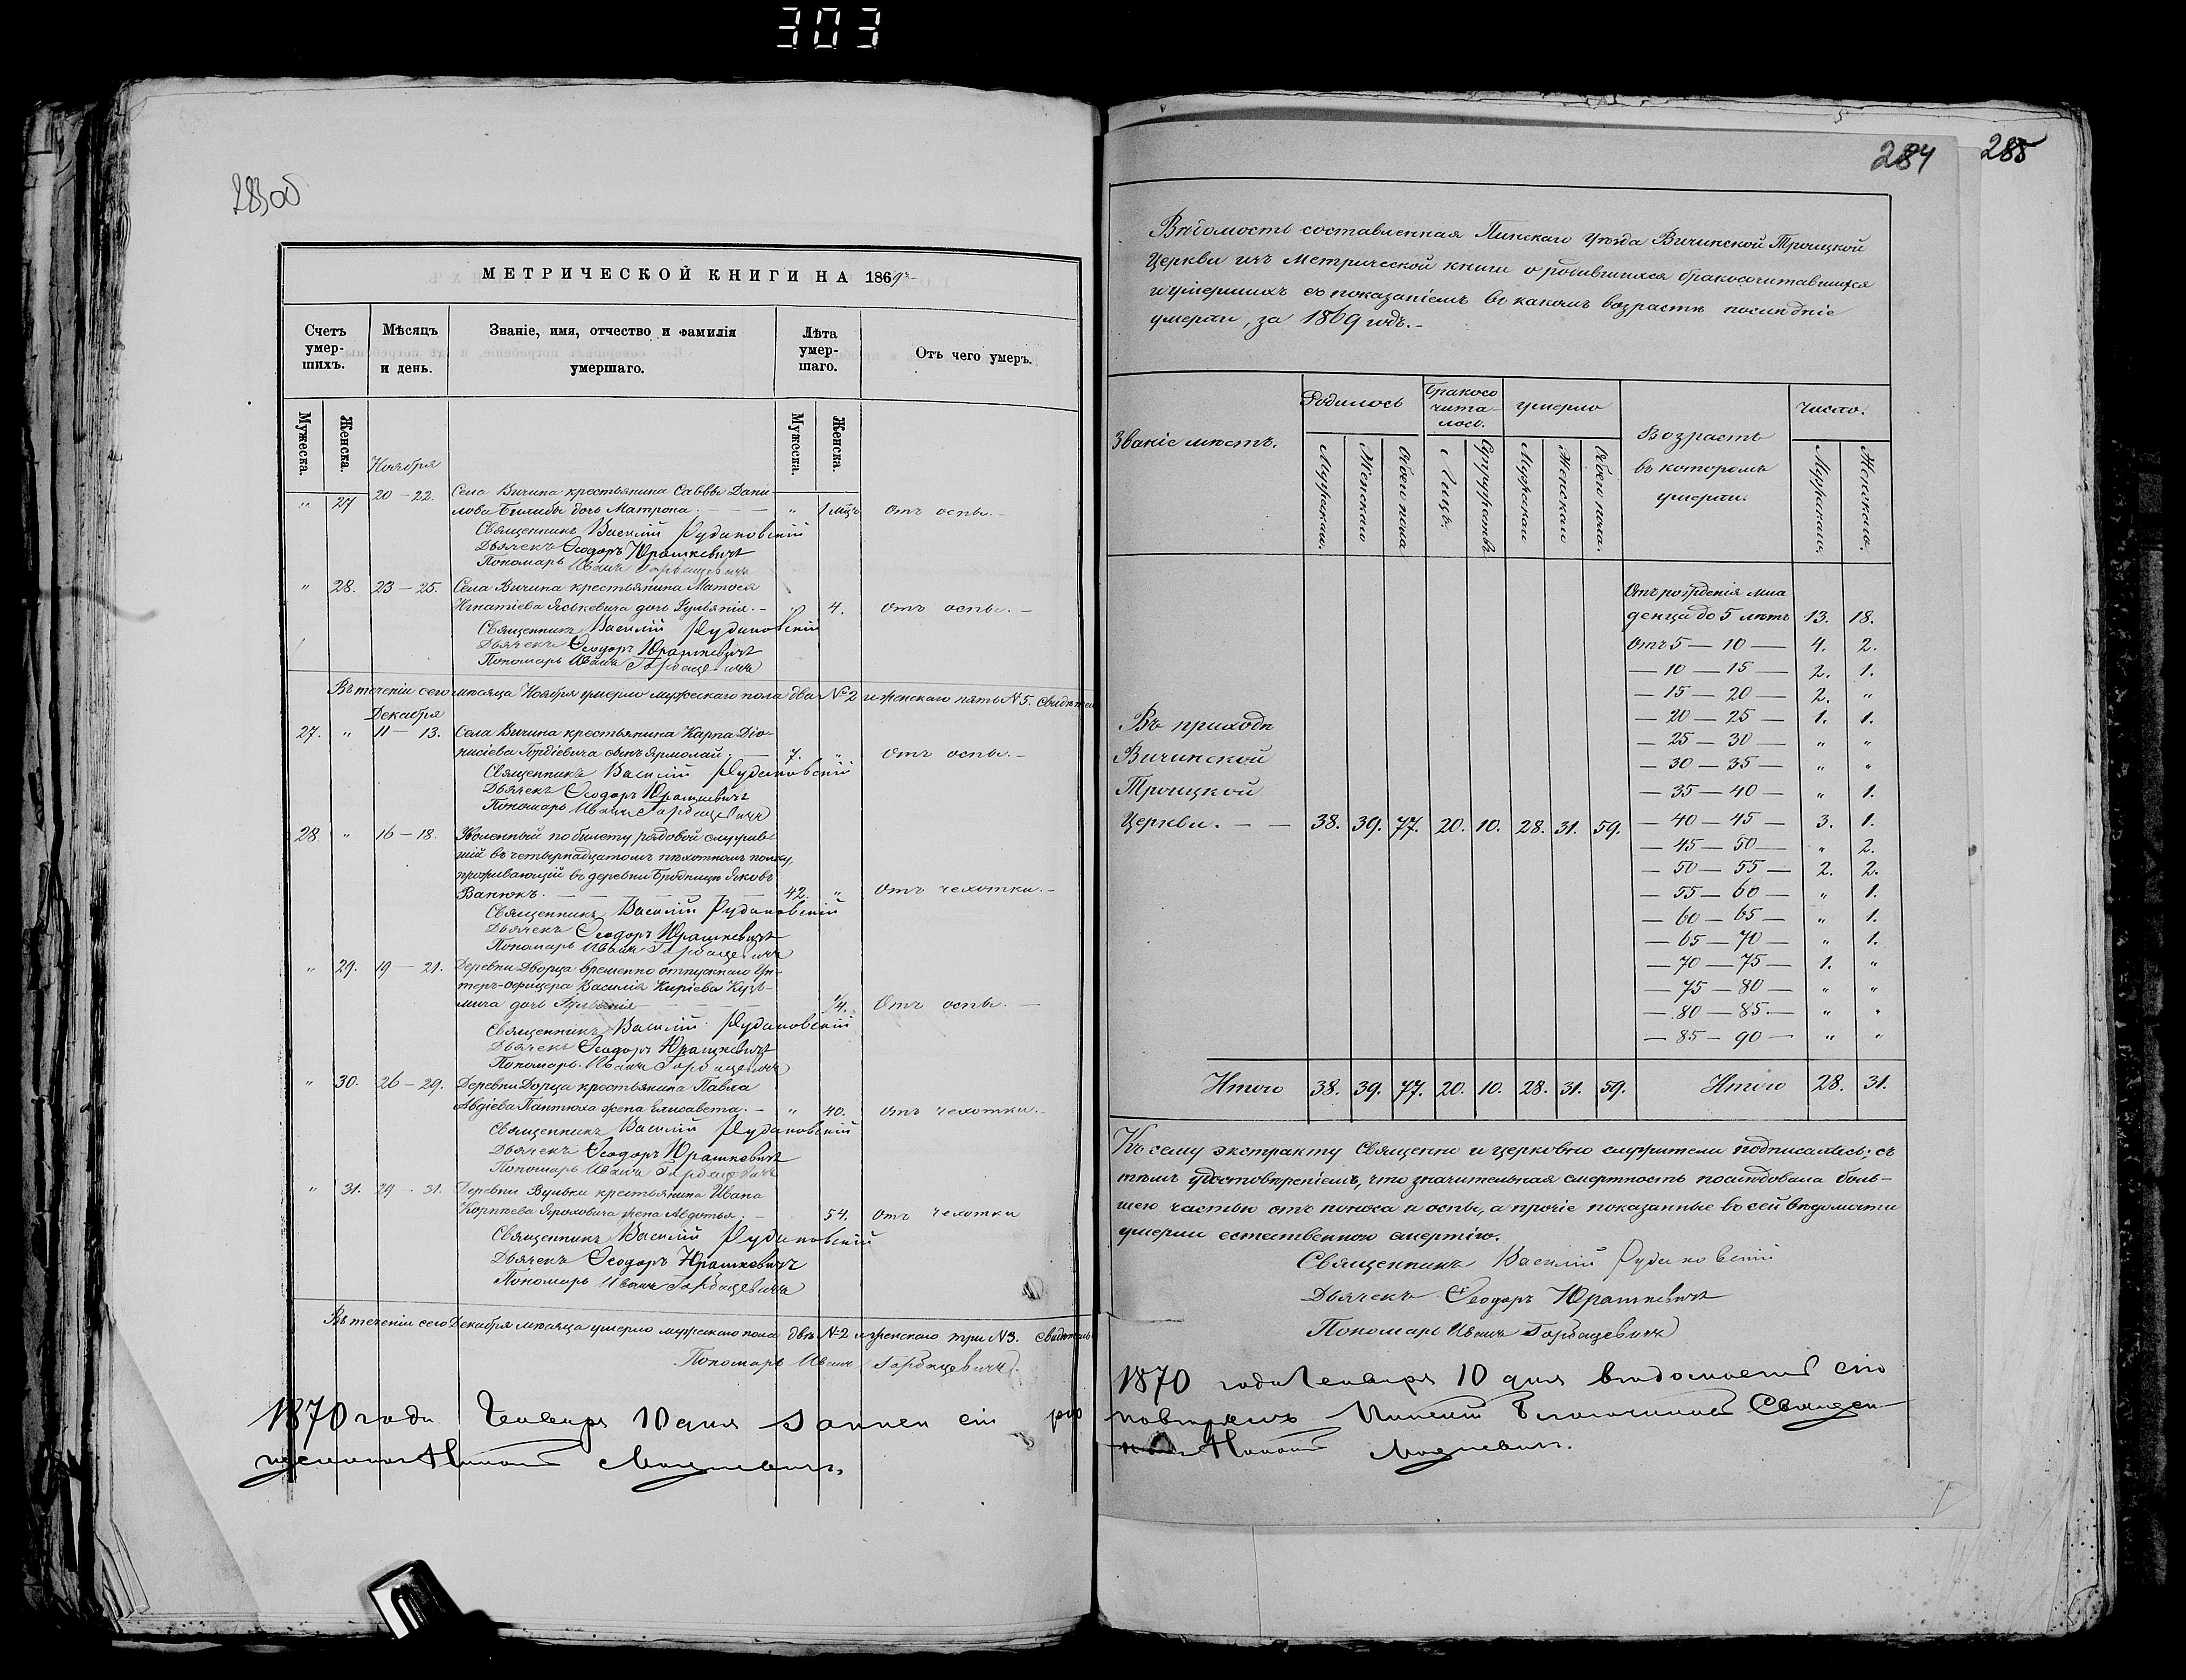 303
283об
МЕТРИЧЕСКОЙ КНИГИ НА 1869 г.
Счетъ умер-шихъ.
Мѣсяцъ и день.
Званіе, имя, отчество и фамилія умершаго.
Лѣта умер-шаго.
Отъ чего умеръ.
Мужеска.
Женска.
Мужеска.
Женска.
Ноября
" 27 20 – 22. Села Вичина крестьянина Саввы Дани-
лова Билиды дочь Матрона. – " 1 мцъ Отъ оспы. –
Священникъ Василій Рудаковскій
Дьячекъ Ѳеодоръ Юрашкевичъ
Пономарь Иванъ Горбацевичъ
" 28. 23 – 25. Села Вичина крестьянина Матѳея
Игнатіева Яськевича дочь Іульянія. – " 4. Отъ оспы. –
Священникъ Василій Рудаковскій
Дьячекъ Ѳеодоръ Юрашкевичъ
Пономарь Иванъ Горбацевичъ
Въ теченіи сего мѣсяца Ноября умерло мужескаго пола два №2 и женскаго пять №5.
Декабря
27. " 11 – 13. Села Вичина крестьянина Карпа Діо-
нисіева Гордіевича сынъ Ярмолай. – 7. " Отъ оспы. –
Священникъ Василій Рудаковскій
Дьячекъ Ѳеодоръ Юрашкевичъ
Пономарь Иванъ Горбацевичъ
28 " 16 – 18. Уволенный по билету рядовой служив-
шій въ четырнадцатомъ пѣхотномъ полку,
проживающій въ деревни Бродницы Яковъ
Ванюкъ. – 42. " Отъ чехотки. –
Священникъ Василій Рудаковскій
Дьячекъ Ѳеодоръ Юрашкевичъ
Пономарь Иванъ Горбацевичъ
" 29. 19 – 21. Деревни Дворца временно отпускнаго Ун-
теръ-офицера Василія Киріева Кузь-
мича дочь – 1/4. Отъ оспы. –
Священникъ Василій Рудаковскій
Дьячекъ Ѳеодоръ Юрашкевичъ
Пономарь Иванъ Горбацевичъ
" 30. 26 – 29. Деревни Дорца крестьянина Павла
Авдіева Пантюха жена Елисавета. – " 40. Отъ чехотки. –
Священникъ Василій Рудаковскій
Дьячекъ Ѳеодоръ Юрашкевичъ
Пономарь Иванъ Горбацевичъ
" 31. 29 – 31. Деревни Вульки крестьянина Ивана
Корнѣева Ярошовича жена Авдотья. – 54. Отъ чехотки
Священникъ Василій Рудаковскій
Дьячекъ Ѳеодоръ Юрашкевичъ
Пономарь Иванъ Горбацевичъ
Въ теченіи сего Декабря мѣсяца умерло мужескаго пола два №2 и женскаго три №3.
Пономарь Иванъ Горбацевичъ
1870 года Генваря 10 дня
284 285
Вѣдомость составленная Пинскаго уѣзда Вичинской Троицкой
Церкви изъ Метрической книги о родившихся бракосочитавшихся
и умершихъ съ показаніемъ въ какомъ возрастѣ послѣдніе
умерли, за 1869 годъ. –
Званіе мѣстъ.
Родилось
Бракосо
чита-
лось.
умерло
Возрастъ
въ которомъ
умерли.
Число.
Мужескаго.
Женскаго
Обоего пола
Лицъ.
Супружествъ
Мужскаго
Женскаго
Обоего пола.
Мужскаго.
Женскаго.
Отъ рожденія мла
денца до 5 лѣтъ 13. 18.
Отъ 5 – 10 – 4. 2.
– 10 – 15 – 2. 1.
– 15 – 20 – 2. "
– 20 – 25 – 1. 1.
– 25 – 30 – " "
– 30 – 35 – " "
– 35 – 40 – " 1.
– 40 – 45 – 3. 1.
– 45 – 50 – " 2.
– 50 – 55 – 2. 2.
– 55 – 60 – " 1.
– 60 – 65 – " 1.
– 65 – 70 – " 1.
– 70 – 75 – 1. "
– 75 – 80 – " "
– 80 – 85. – " "
– 85 – 90 – " "
Въ приходѣ
Вичинской
Троицкой
Церкви. – – 38. 39. 77. 20. 10. 28. 31. 59.
Итого 38. 39. 77. 20. 10. 28. 31. 59. Итого 28. 31.
Къ сему экстракту Священно и церковно служители подписались; съ
тѣмъ удостовѣреніемъ, что значительная смертность послѣдовала боль-
шею частью отъ поноса и оспы, а прочіе показанные въ сей вѣдомости
умерли естественною смертію.
Священникъ Василій Рудаковскій
Дьячекъ Ѳеодоръ Юрашкевичъ
Пономарь Иванъ Горбацевичъ
1870 года Генваря 10 дня вѣдомость сію